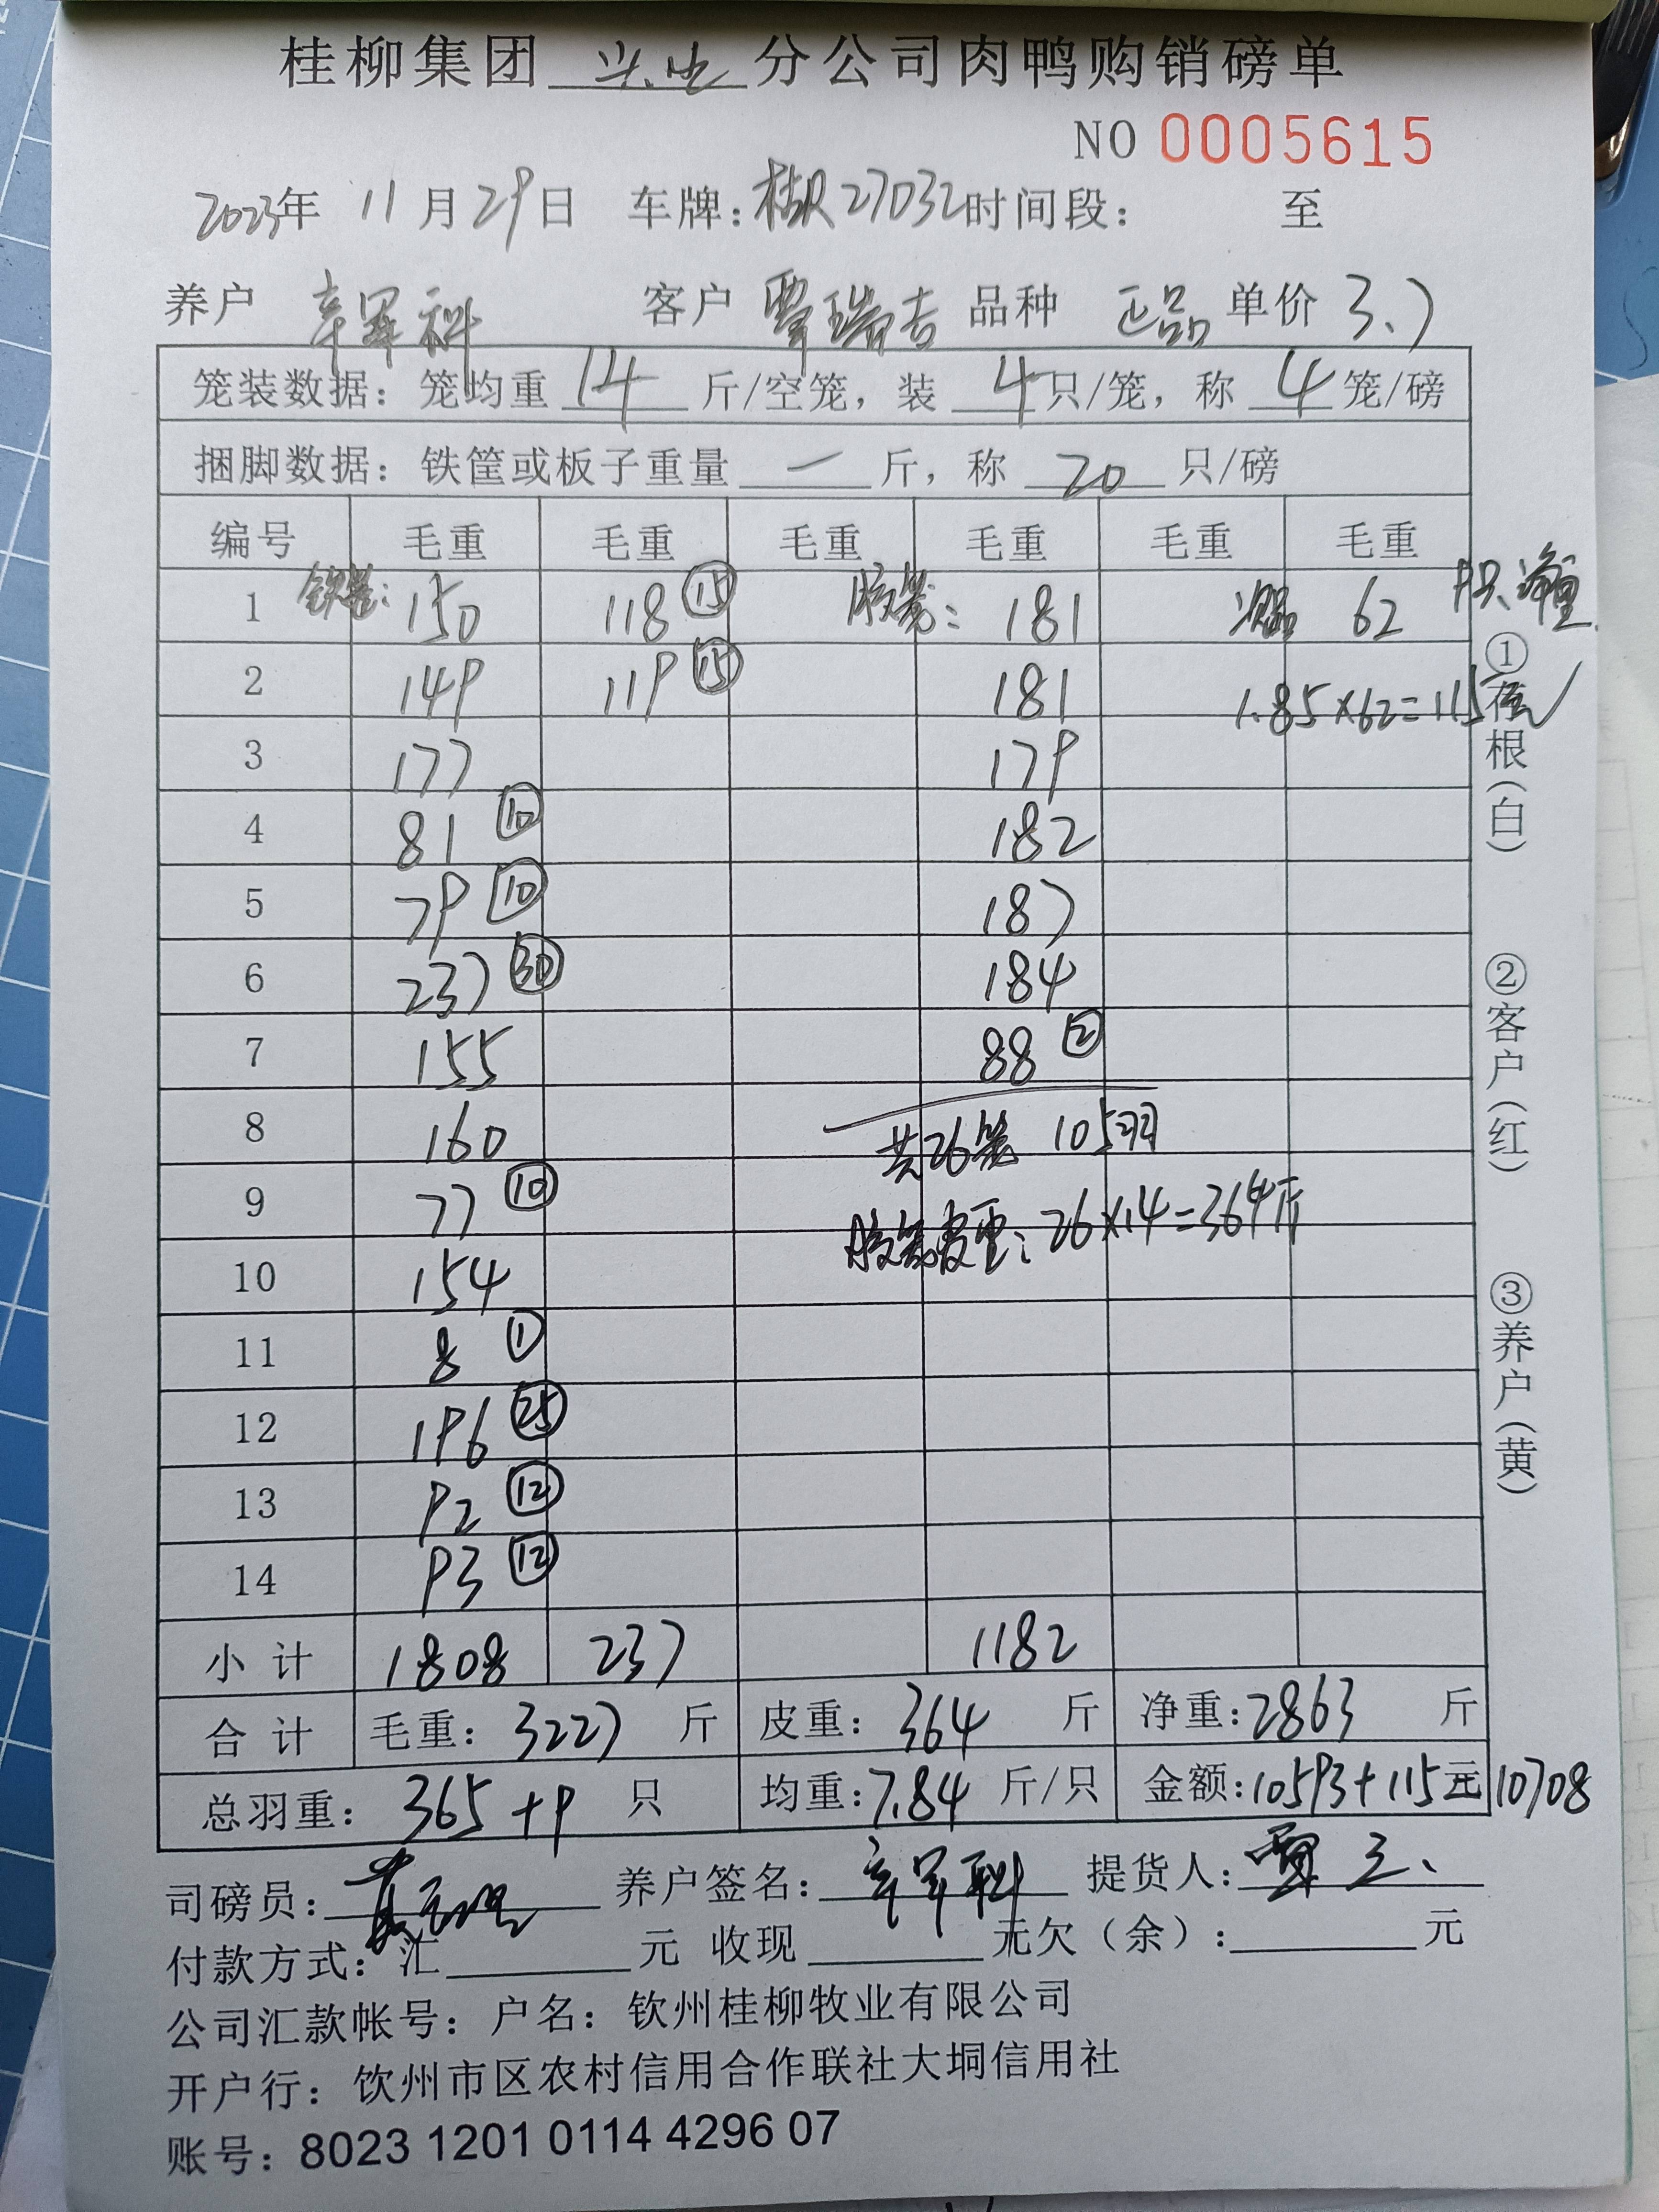 桂柳集团 兴业 分公司肉鸭购销磅单
NO 0005615
2023年 11月29日 车牌:桂R27032时间段: 至
养户 客户 覃瑞吉 品种 正品 单价 3.7
笼装数据:笼均重 14 斤/空笼,装 4 只/笼,称 4 笼/磅
捆脚数据:铁筐或板子重量 一 斤,称 20 只/磅
编号 毛重 毛重 毛重 毛重 毛重 毛重
1 铁笼: 150 118 ⑮ 胶笼: 181 次品 62 净重
2 149 119 ⑮ 181 1.85×62=115元✓
3 177 179
4 81 ⑩ 182
5 79 ⑩ 187
6 237 ㉚ 184
7 155 88 ②
8 160 共26笼 105羽
9 77 ⑩ 胶笼皮重:26×14=364斤
10 154
11 8 ①
12 196 ㉕
13 92 ⑫
14 93 ⑫
小计 1808 237 1182
合计 毛重:3227 斤 皮重:364 斤 净重:2863 斤
总羽重:365+9 只 均重:7.84 斤/只 金额:10593+115元 10708
司磅员: 养户签名: 提货人:覃
付款方式:汇 元 收现 元欠(余): 元
公司汇款帐号:户名:钦州桂柳牧业有限公司
开户行:钦州市区农村信用合作联社大垌信用社
账号:8023 1201 0114 4296 07
①存根(白)
②客户(红)
③养户(黄)